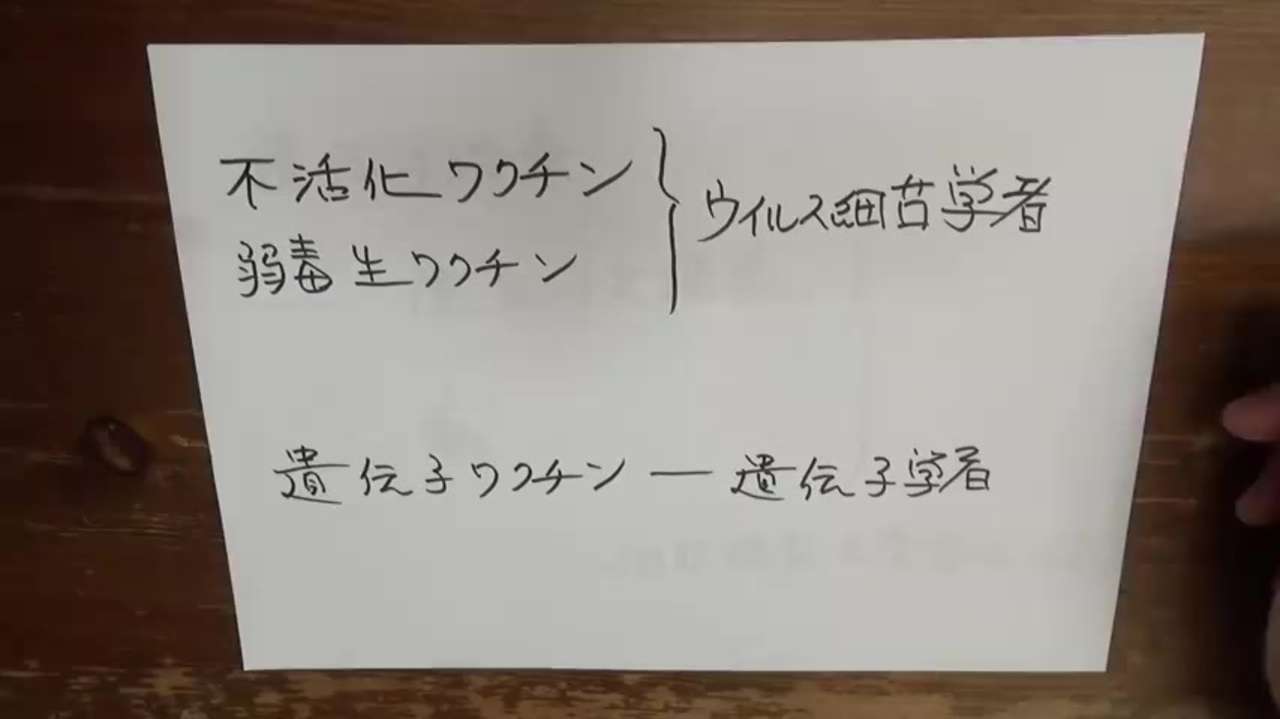 不活化ワクチン
弱毒生ワクチン
ウイルス細菌学者
遺伝子ワクチン ― 遺伝子学者